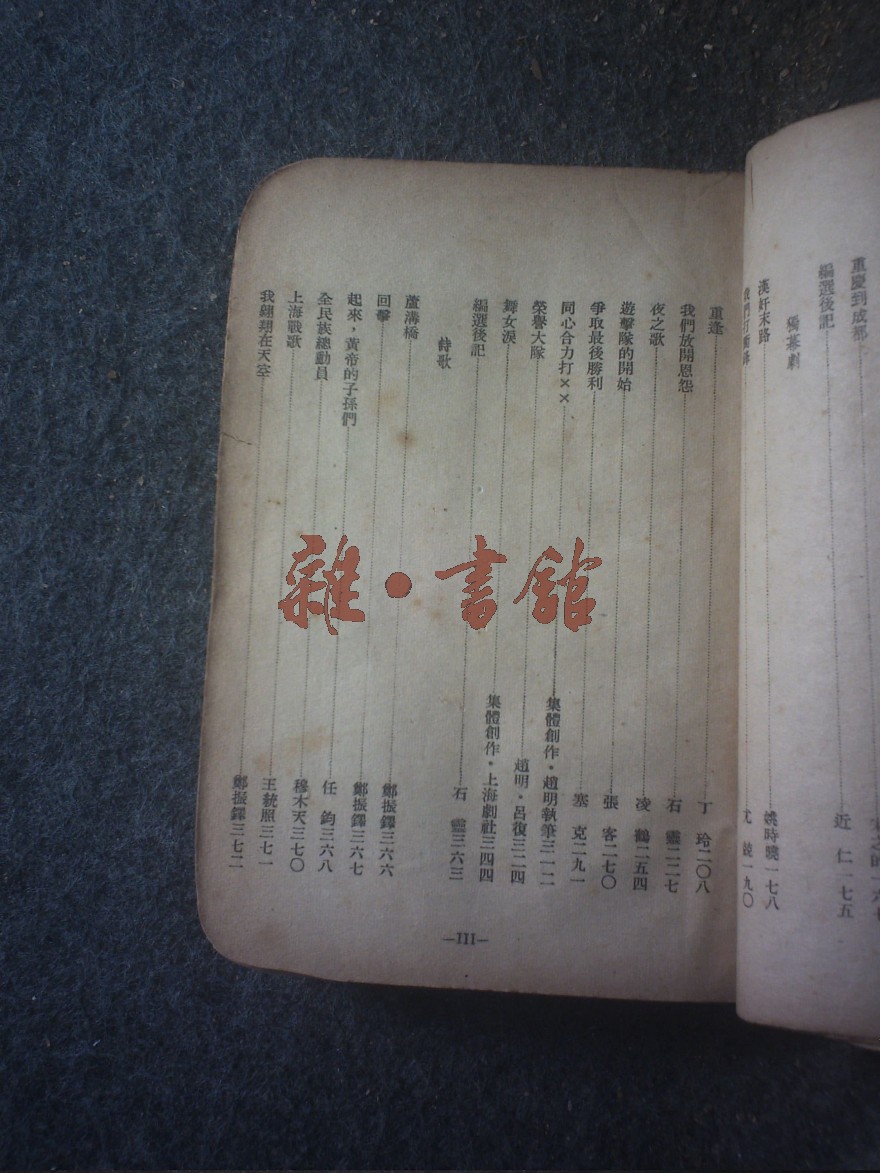 重慶到成都
編選後記……近　仁一七五
獨幕劇
漢奸末路……姚時曉一七八
我們打衝鋒……尤　競一九〇
重逢……丁　玲二〇八
我們放開恩怨……石　靈二二七
夜之歌……凌　鶴二五四
遊擊隊的開始……張　客二七〇
爭取最後勝利……塞　克二九一
同心合力打××……集體創作・趙明執筆三一二
榮譽大隊……趙明・呂復三二四
舞女淚……集體創作・上海劇社三四四
編選後記……石　靈三六三
詩歌
蘆溝橋……鄭振鐸三六六
回擊……鄭振鐸三六七
起來，黃帝的子孫們……任　鈞三六八
全民族總動員……穆木天三七〇
上海戰歌……王統照三七一
我翱翔在天空……鄭振鐸三七二
—III—
雜・書館